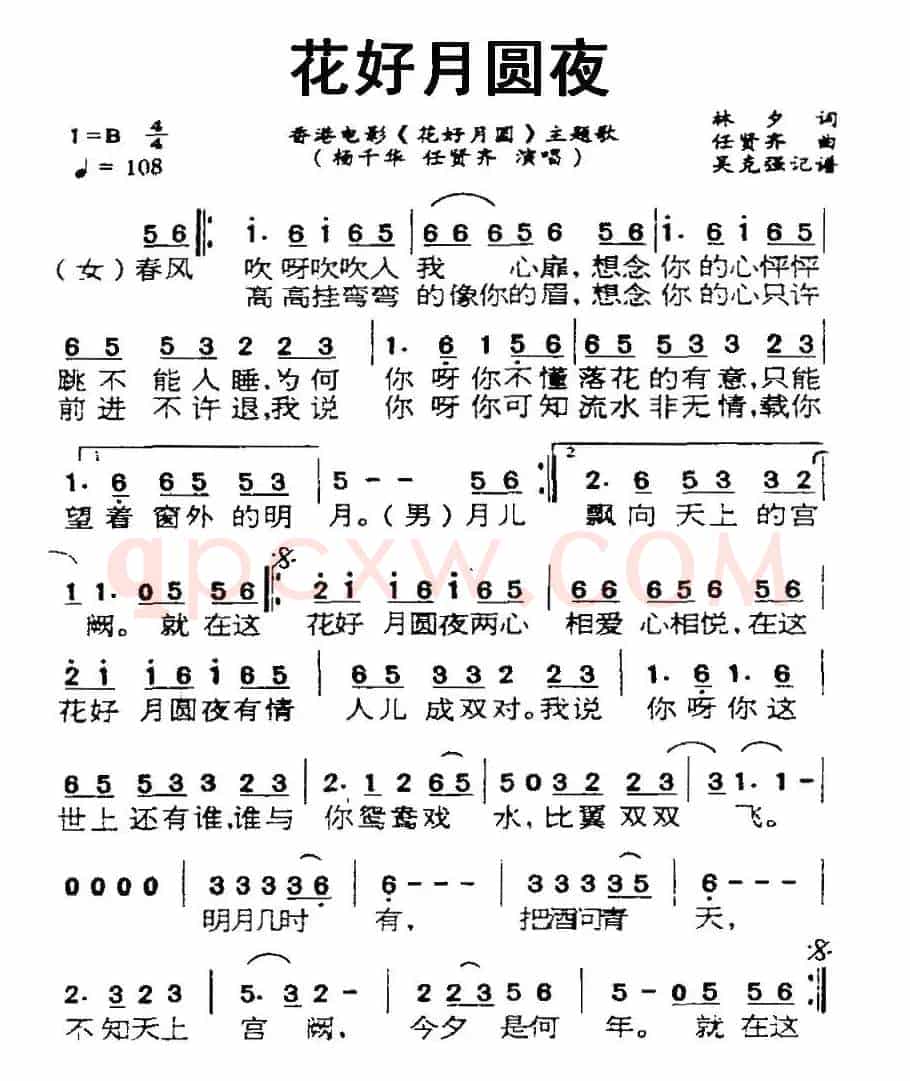 花好月圆夜
1=B 4/4 香港电影《花好月圆》主题歌 林夕词
♩= 108 (杨千华 任贤齐 演唱) 任贤齐 曲
吴克强记谱
5 6 1· 6 1 6 5 6 6 6 5 6 5 6 1· 6 1 6 5
(女)春风 吹呀吹吹入我 心扉,想念你的心怦怦
高高挂弯弯的像你的眉,想念你的心只许
6 5 5 3 2 2 3 1· 6 1 5 6 6 5 5 3 3 2 3
跳不能入睡,为何 你呀你不懂落花的有意,只能
前进不许退,我说 你呀你可知流水非无情,载你
1 2
1· 6 6 5 5 3 5 - - 5 6 2· 6 5 3 3 2
望着窗外的明 月。(男)月儿 飘向天上的宫
qpcxw.COM
1 1· 0 5 5 5 6 2 1 1 6 1 6 5 6 6 6 5 6 5 6
阙。就在这 花好月圆夜两心 相爱心相悦,在这
2 1 1 6 1 6 5 6 5 5 3 2 2 3 1· 6 1· 6
花好月圆夜有情 人儿成双对。我说 你呀你这
6 5 5 3 3 2 3 2· 1 2 6 5 5 0 3 2 2 3 3 1· 1 -
世上还有谁,谁与 你鸳鸯戏 水,比翼双双 飞。
0 0 0 0 3 3 3 3 6 6 - - - 3 3 3 3 5 6 - - -
明月几时 有, 把酒问青 天,
2· 3 2 3 5· 3 2 - 2 2 3 5 5 5 - 0 5 5 6
不知天上 宫阙, 今夕是何 年。就在这